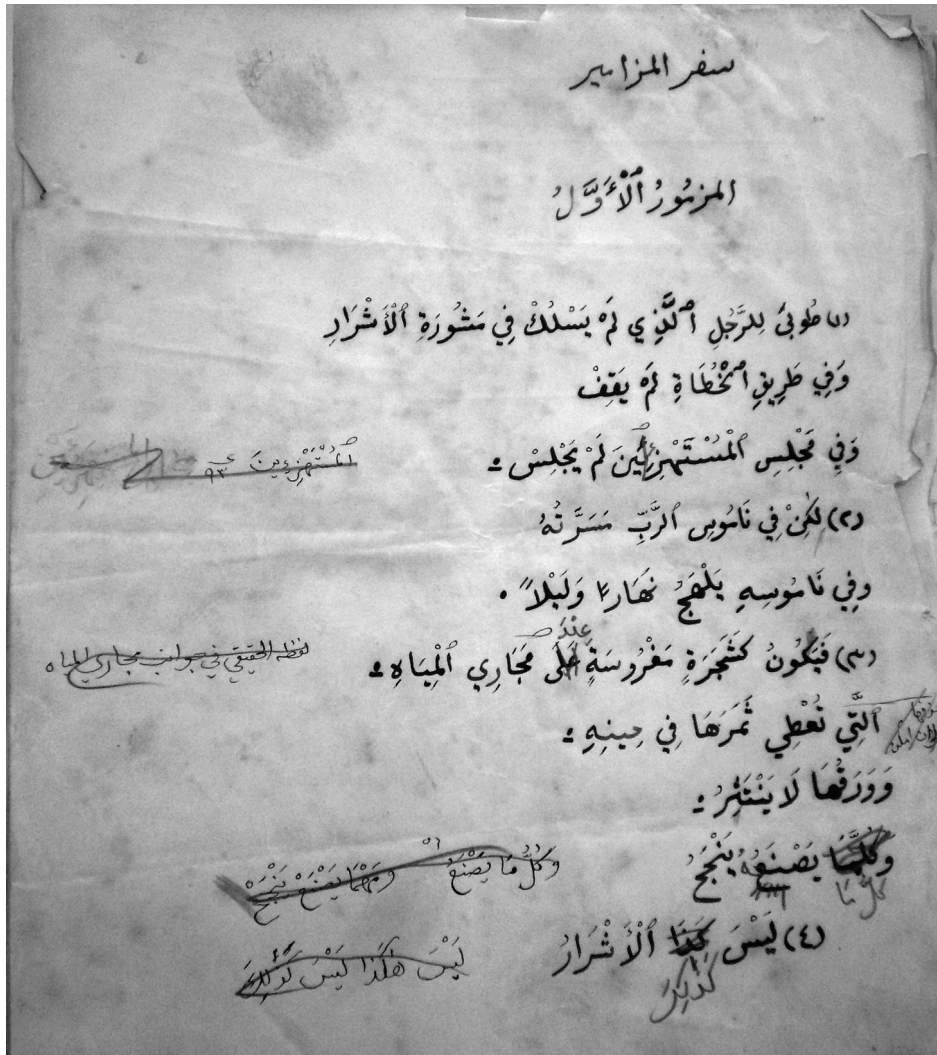 سفر المزامير
المزمُورُ ٱلْأَوَّلُ
(١) طُوبىَ لِلرَّجُلِ ٱللَّذِي لَمْ يَسْلُكْ فِي مَشُورَةِ ٱلْأَشْرَارِ
وَفِي طَرِيقِ ٱلْخُطَاةِ لَمْ يَقِفْ
وَفِي مَجْلِسِ ٱلْمُسْتَهْزِئِينَ لَمْ يَجْلِسْ.
ٱلْمُسْتَهْزِءِينَ
(٢) لٰكِنْ فِي نَامُوسِ ٱلرَّبِّ مَسَرَّتُهُ
وفِي نَامُوسِهِ يَلْهَجُ نَهَارًا وَلَيْلاً.
(٣) فَيَكُونُ كَشَجَرَةٍ مَغْرُوسَةٍ عِنْدَ عَلَى مَجَارِي ٱلْمِيَاهِ.
لفظه الحقيقي في جوانب مجاري المياه
ٱلَّتِي تُعْطِي ثَمَرَهَا فِي حِينِهِ.
وَوَرَقُهَا لَا يَنْتَثِرُ.
وَكُلَّمَا يَصْنَعُهُ يَنْجَحُ
كُلُّ مَا
وَكُلُّ مَا يَصْنَعُ وَمَهْمَا يَصْنَعْ يَنْجَحْ
(٤) لَيْسَ كَذَا ٱلْأَشْرَارُ
كَذٰلِكَ
لَيْسَ هٰكَذَا لَيْسَ كَذٰلِكَ